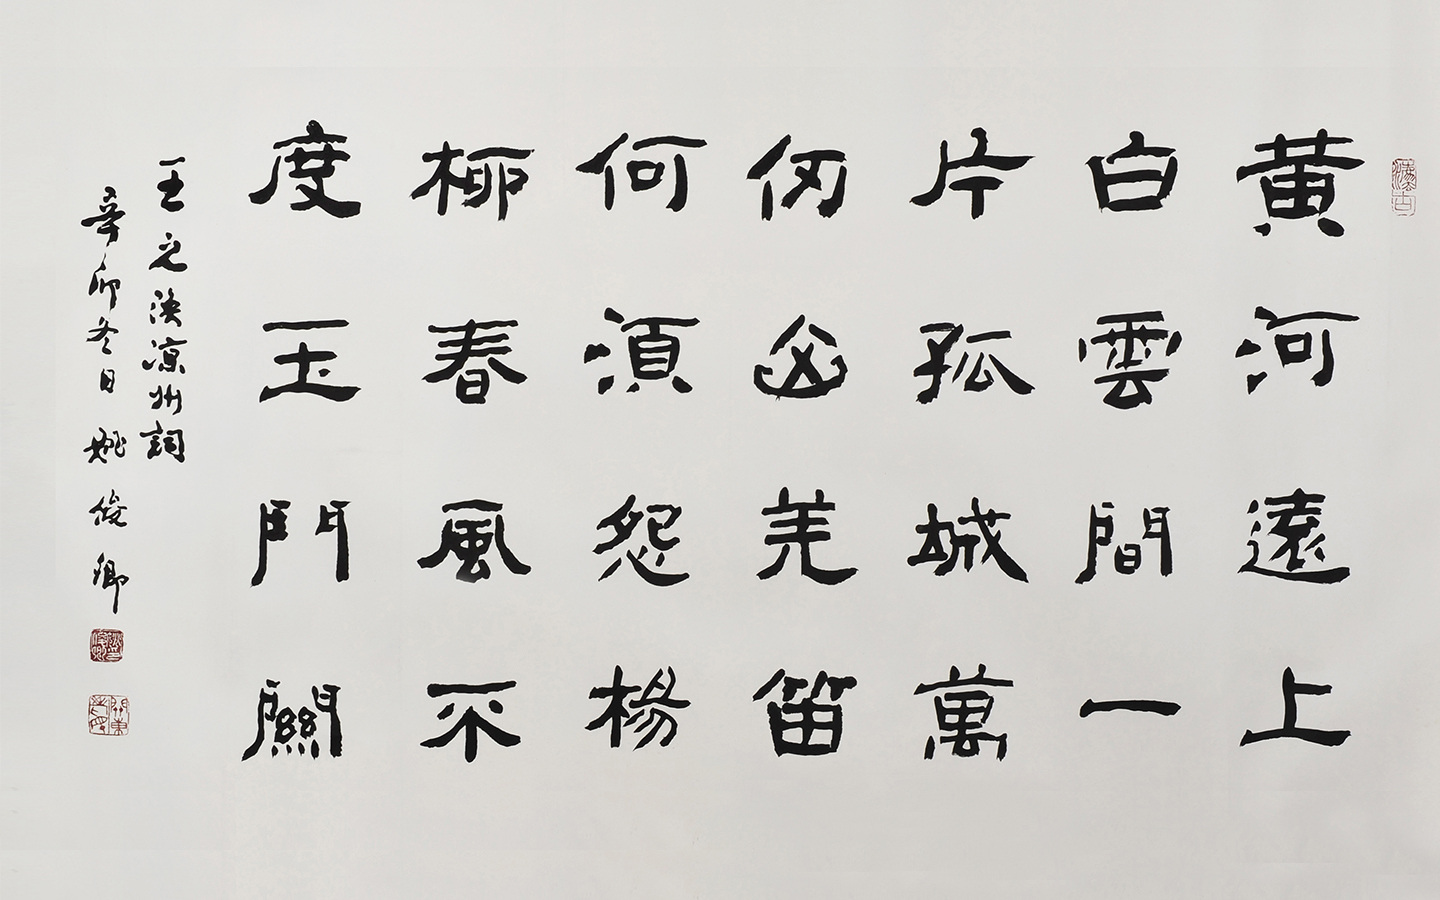 黃河遠上
白雲間一
片孤城萬
仞山羌笛
何須怨楊
柳春風不
度玉門關
王之渙涼州詞
辛卯冬日姚俊卿